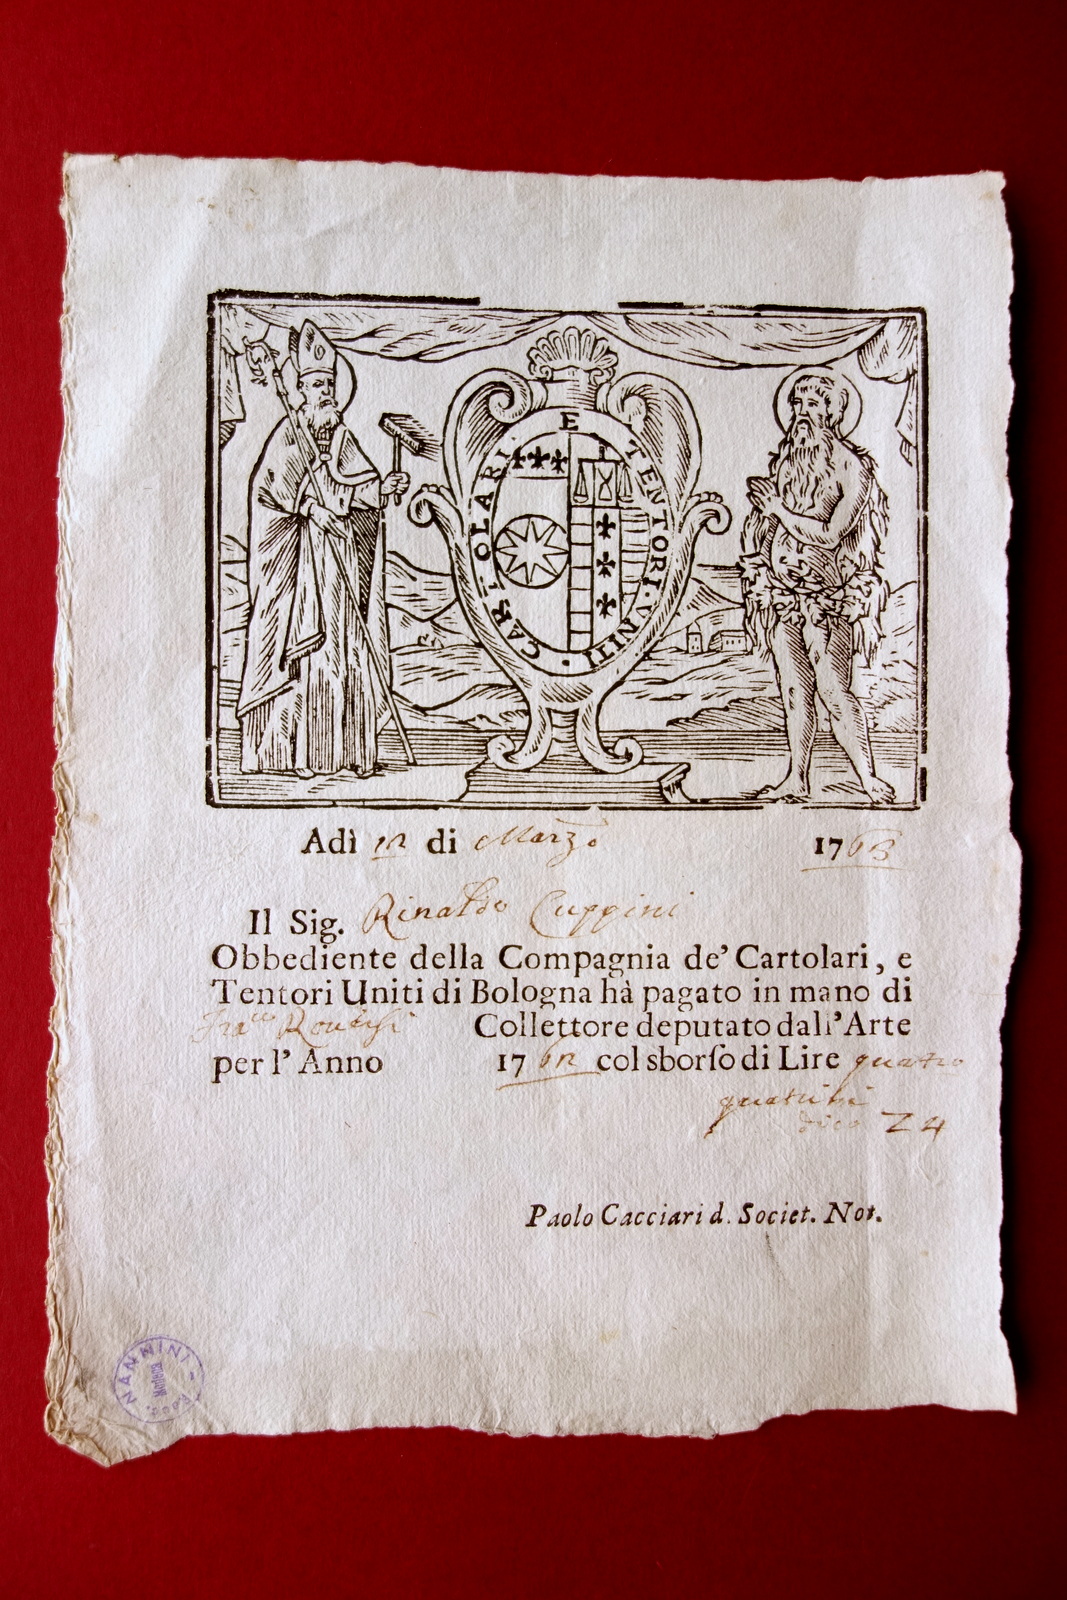 CARTOLARI · E TENTORI · VNITI ·
Adì 12 di Marzo 1763
Il Sig. Rinaldo Cuppini
Obbediente della Compagnia de' Cartolari, e
Tentori Uniti di Bologna hà pagato in mano di
Collettore deputato dall'Arte
per l'Anno 1762 col sborſo di Lire quatro
quatrini
dico 24
Paolo Cacciari d. Societ. Not.
NANNINI